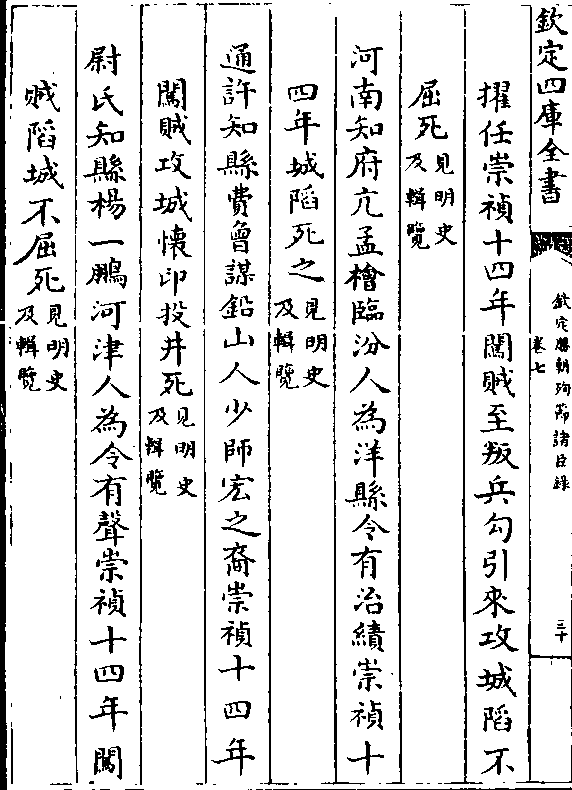 欽定四庫全書
欽定勝朝殉節諸臣錄
卷七
三十
擢任崇禎十四年闖賊至叛兵勾引來攻城陷不
屈死見明史及輯覽
河南知府亢孟檜臨汾人為洋縣令有治績崇禎十
四年城陷死之見明史及輯覽
通許知縣費曾謀鉛山人少師宏之裔崇禎十四年
闖賊攻城懷印投井死見明史及輯覽
尉氏知縣楊一鵬河津人為令有聲崇禎十四年闖
賊陷城不屈死見明史及輯覽